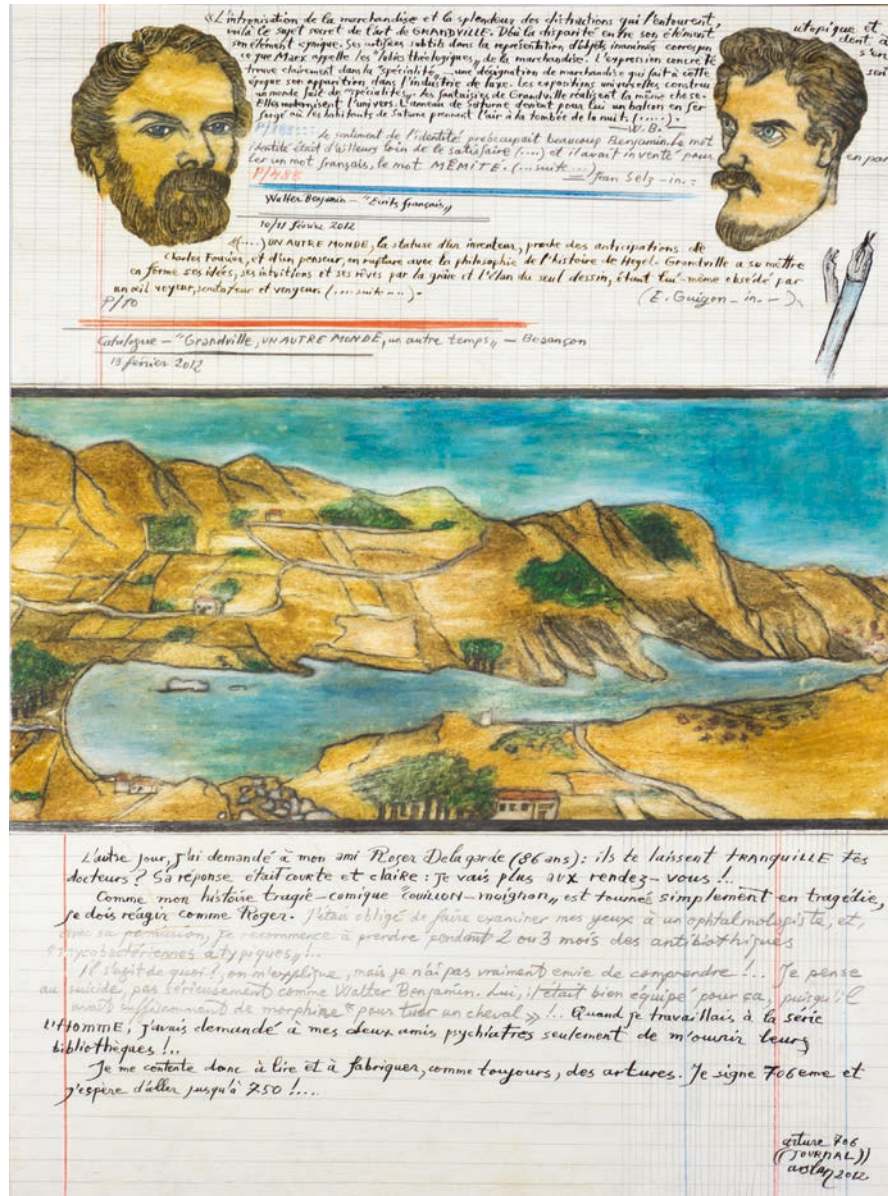 «L'intronisation de la marchandise et la splendeur des distractions qui l'entourent,
voilà le sujet secret de l'art de GRANDVILLE. D'où la disparité entre son élément
utopique et
son élément cynique. Ses artifices subtils dans la représentation d'objets inanimés correspon
dent à
ce que Marx appelle les "lubies théologiques" de la marchandise. L'expression concrète
s'en
trouve clairement dans la "spécialité" — une désignation de marchandise qui fait à cette
époque son apparition dans l'industrie de luxe. Les expositions universelles construi
sent
un monde fait de "spécialités". Les fantaisies de Grandville réalisent la même chose.
Elles modernisent l'univers. L'anneau de Saturne devient pour lui un balcon en fer
forgé où les habitants de Saturne prennent l'air à la tombée de la nuit. (.....).
— W.B. —
Le sentiment de l'identité préoccupait beaucoup Benjamin. Le mot
identité était d'ailleurs loin de le satisfaire (....) et il avait inventé pour
en par
ler un mot français, le mot MÊMITÉ. (...suite...)
P/485
Jean Selz - in. :
Walter Benjamin – "Ecrits français"
10/11 février 2012
«(....) UN AUTRE MONDE, la stature d'un inventeur, proche des anticipations de
Charles Fourier, et d'un penseur, en rupture avec la philosophie de l'histoire de Hegel. Grandville a su mettre
en forme ses idées, ses intuitions et ses rêves par la grâce et l'élan du seul dessin, étant lui-même obsédé par
un œil voyeur, et vengeur. (....suite....) -
P/10
(E. Guigon - in. -)
Catalogue – "Grandville, UN AUTRE MONDE, un autre temps" – Besançon
13 février 2012
L'autre jour, j'ai demandé à mon ami Roger Delagarde (86 ans) : ils te laissent TRANQUILLE tes
docteurs ? Sa réponse était courte et claire : Je vais plus aux rendez-vous !..
Comme mon histoire tragic-comique "couillon-moignon" est tournée simplement en tragédie,
je dois réagir comme Roger. J'étais obligé de faire examiner mes yeux à un ophtalmologiste, et,
avec sa permission, je recommence à prendre pendant 2 ou 3 mois des antibiothiques
"mycobactériennes atypiques" !..
Il s'agit de quoi !, on m'explique, mais je n'ai pas vraiment envie de comprendre !... Je pense
au suicide, pas sérieusement comme Walter Benjamin. Lui, il était bien équipé pour ça, puisqu'il
avait suffisamment de morphine "pour tuer un cheval" !... Quand je travaillais à la série
L'HOMME, j'avais demandé à mes deux amis psychiatres seulement de m'ouvrir leurs
bibliothèques !..
Je me contente donc à lire et à fabriquer, comme toujours, des artures. Je signe 706eme et
j'espère d'aller jusqu'à 750 !....
arture 706
((JOURNAL))
arslan 2012